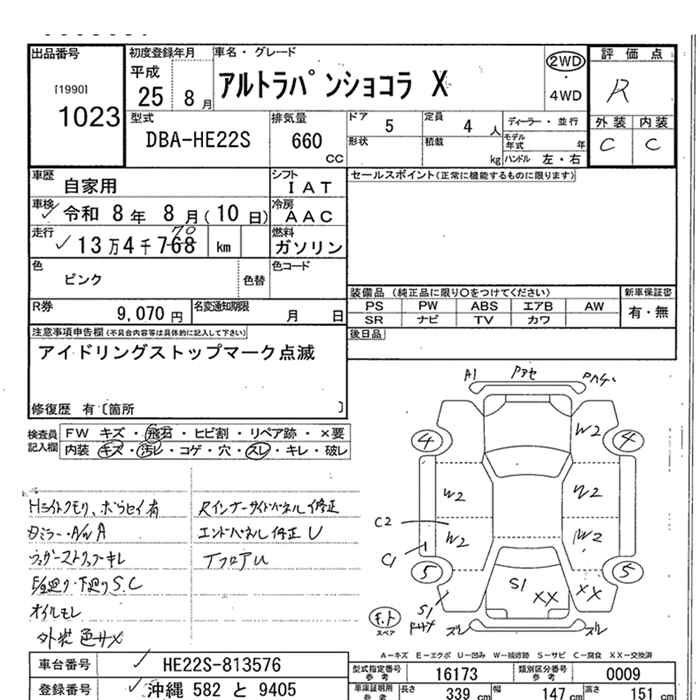 出品番号 初度登録年月 車名・グレード 評価点
[1990] 1023
平成 25 8月
アルトラパンショコラ X
2WD・4WD
R
型式 DBA-HE22S
排気量 660 CC
ドア 5 定員 4 人
形状 積載 kg
ディーラー・並行
モデル年式 年
ハンドル 左・右
外装 内装
C C
車歴 自家用
シフト IAT
セールスポイント(正常に機能するものに限ります)
車検 令和 8年 8月(10日)
冷房 AAC
走行 13万4千768 70 km
燃料 ガソリン
色 ピンク 色替
色コード
装備品 (純正品に限り○をつけてください) 新車保証書
PS PW ABS エアB AW 有・無
SR ナビ TV カワ
R券 9,070円 名変通知期限 月 日
後日品
注意事項申告欄(不具合内容等は具体的に記入して下さい)
アイドリングストップマーク点滅
修復歴 有〔箇所 〕
検査員記入欄
FW キズ・飛石・ヒビ割・リペア跡・×要
内装 キズ・汚レ・コゲ・穴・スレ・キレ・破レ
Rインナーサイドパネル修正
エンドパネル修正 U
TフロアU
オイルモレ
外装 色サメ
A1
W2
4 4
W2 W2
C2
W2 W2
C1 1
5 5
S1 XX XX
S1
スペア
A-キズ E-エクボ U-凹み W-補修跡 S-サビ C-腐食 XX-交換済
車台番号 HE22S-813576
型式指定番号 参考 16173 類別区分番号 参考 0009
登録番号 沖縄 582 と 9405
車庫証明用 参考 長さ 339 cm 幅 147 cm 高さ 151 cm